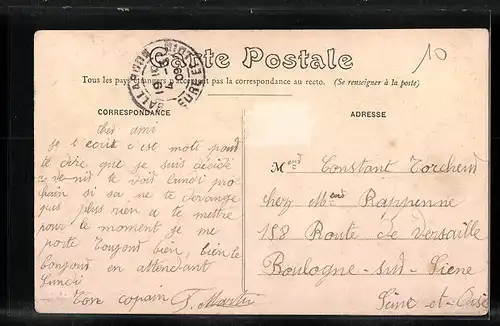 10
Carte Postale
Tous les pays étrangers n'acceptent pas la correspondance au recto. (Se renseigner à la poste)
CORRESPONDANCE
ADRESSE
cher ami
je t'ecrit c est mots pour
te dire que je suis décidé
a venir te voir lundi pro
chain si sa ne te dérange
pas plus rien a te mettre
pour le moment je me
porte toujour bien, bien le
bonjour en attendant
Lundi
Ton copain F. Martin
Constant
chez Rappenne
158 Route de Versaille
Boulogne-sur-Siene
Seine-et-Oise